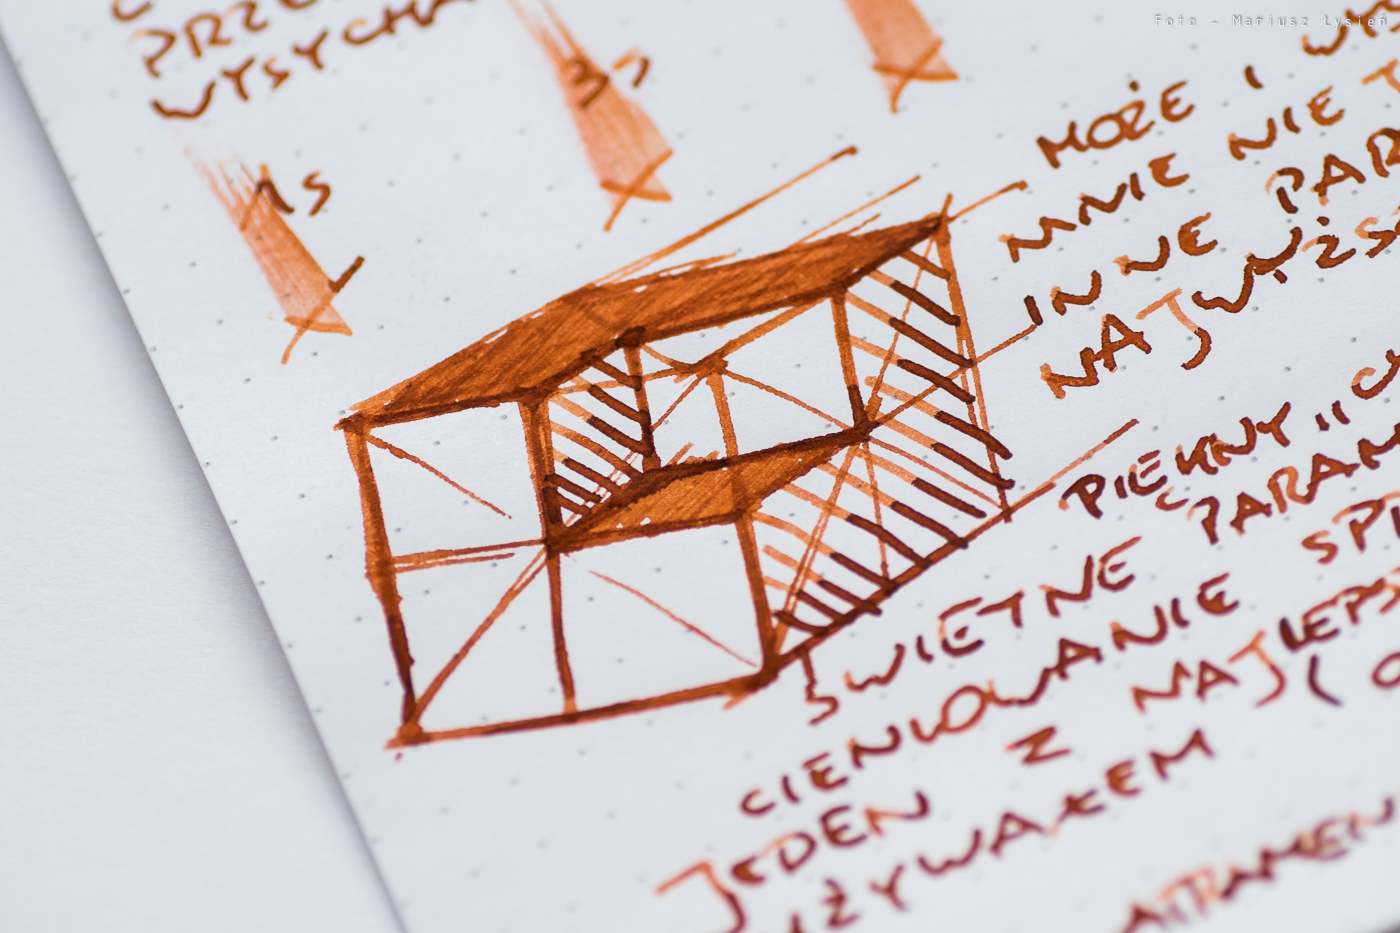 Foto - Mariusz Łysień
WYSYCHA
1s
3s
MOŻE I
MNIE NIE
INNE PAR
NAJWYŻS
PIĘKNY "C
ŚWIETNE PARAM
CIENIOWANIE SPR
JEDEN Z NAJLEPS
UŻYWAŁEM ( O
ATRAMEN